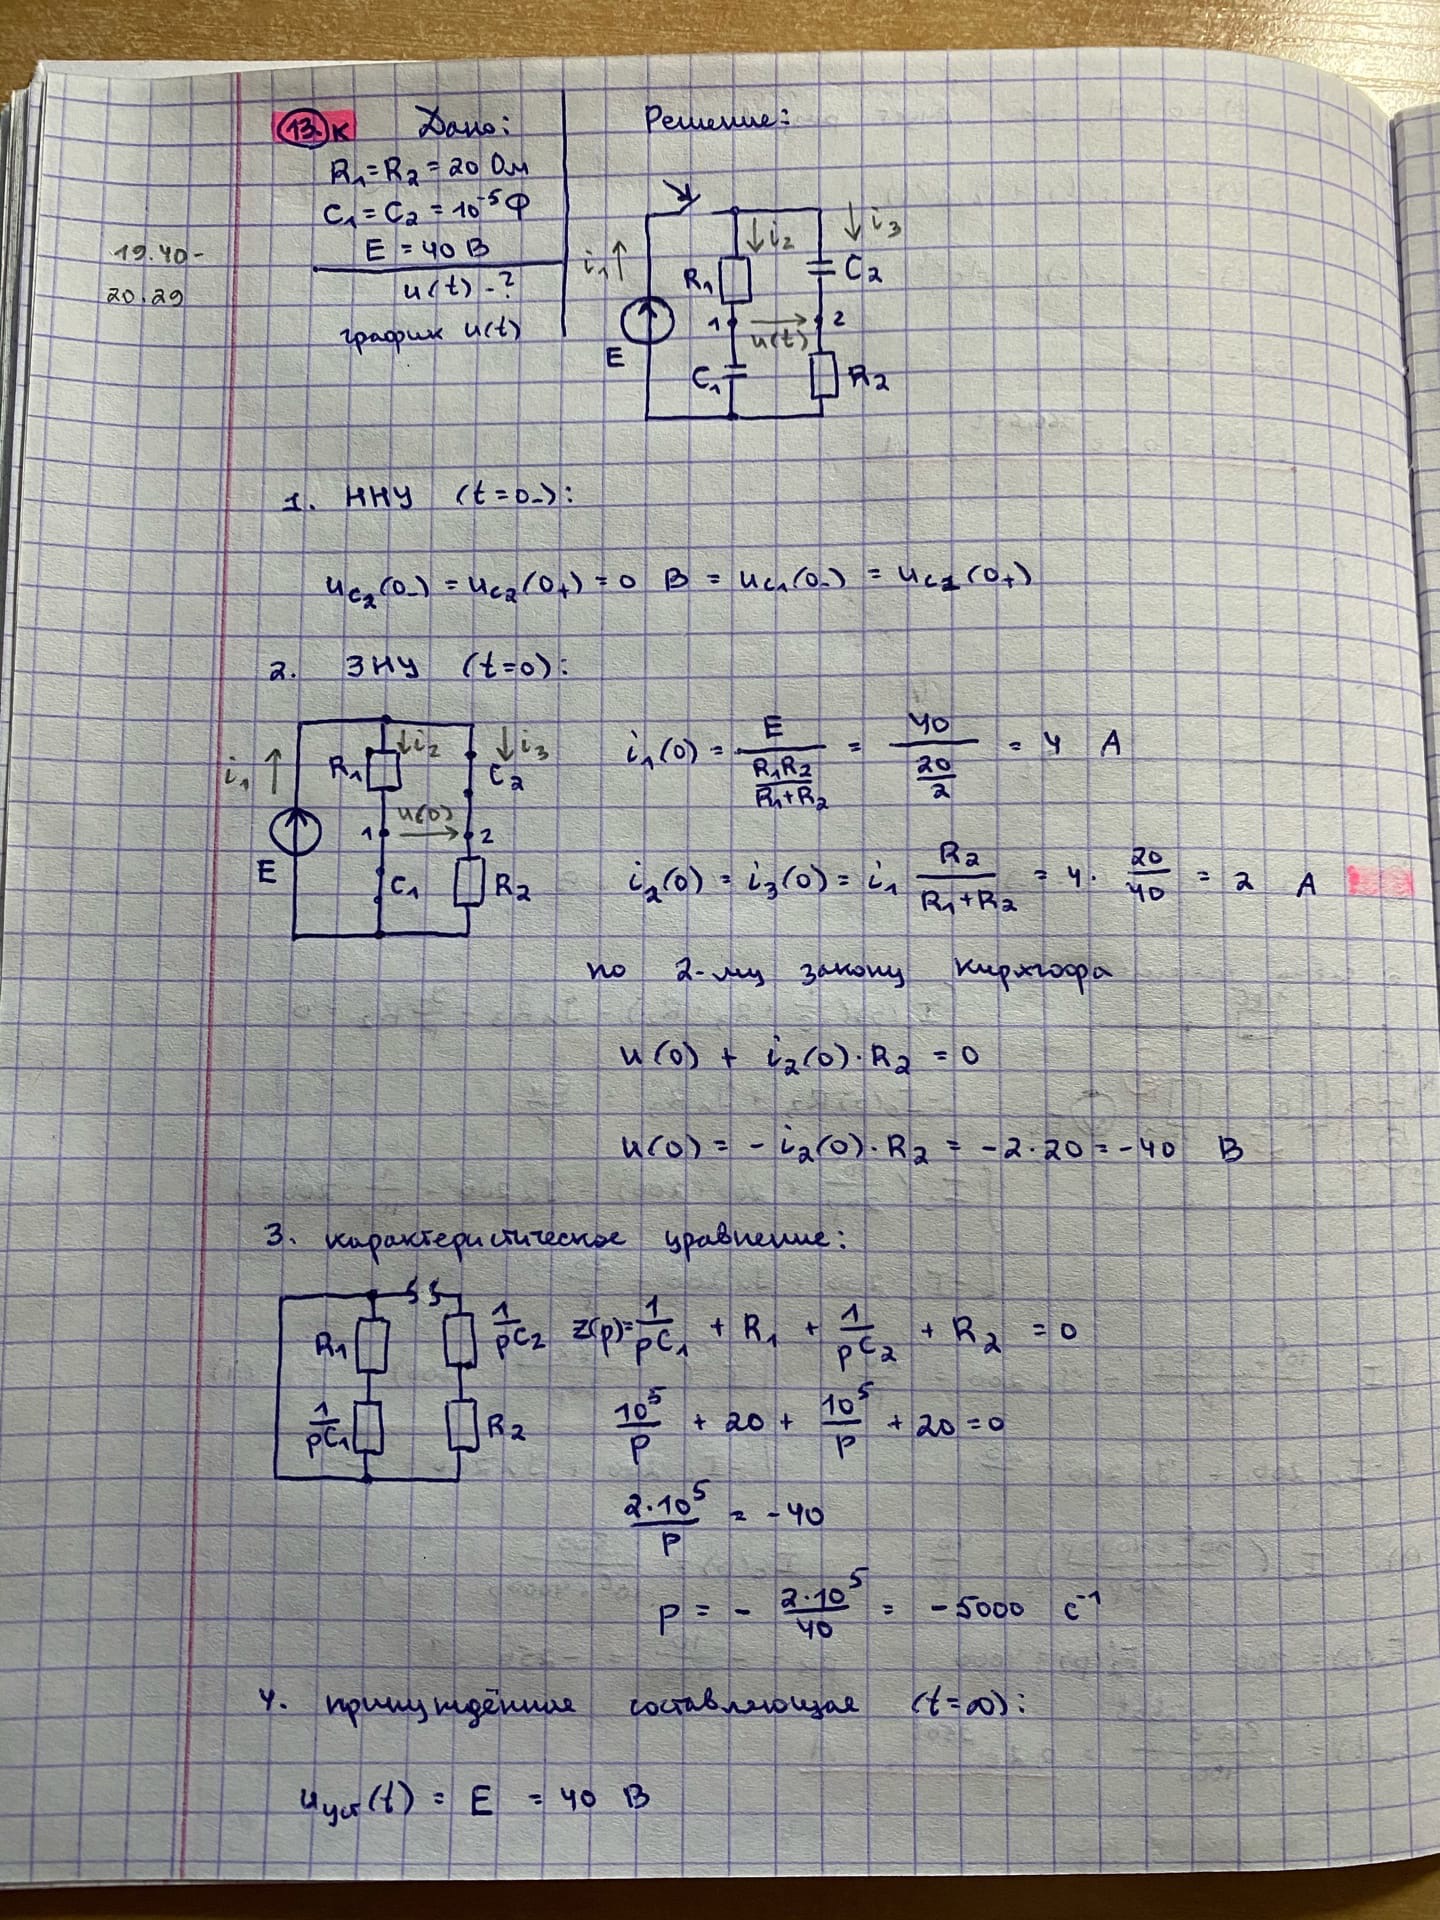 13.к Дано:
R₁=R₂=20 Ом
C₁=C₂=10⁻⁵ Ф
E = 40 В
u(t) - ?
график u(t)
19.40-
20.29
Решение:
i₁ i₂ i₃
R₁ C₂
1 u(t) 2
E C₁ R₂
1. ННУ (t=0₋):
u_C₂(0₋) = u_C₂(0₊) = 0 В = u_C₁(0₋) = u_C₁(0₊)
2. ЗНУ (t=0):
i₁ R₁ i₂ i₃ C₂
1 u(0) 2
E C₁ R₂
i₁(0) = E / (R₁R₂ / (R₁+R₂)) = 40 / (20/2) = 4 А
i₂(0) = i₃(0) = i₁ R₂ / (R₁+R₂) = 4 · 20/40 = 2 А
по 2-му закону Кирхгофа
u(0) + i₂(0)·R₂ = 0
u(0) = - i₂(0)·R₂ = -2·20 = -40 В
3. характеристическое уравнение:
R₁ 1/pC₂
1/pC₁ R₂
Z(p) = 1/pC₁ + R₁ + 1/pC₂ + R₂ = 0
10⁵/p + 20 + 10⁵/p + 20 = 0
2·10⁵/p = -40
p = - 2·10⁵/40 = -5000 с⁻¹
4. принуждённая составляющая (t=∞):
u_уст(t) = E = 40 В